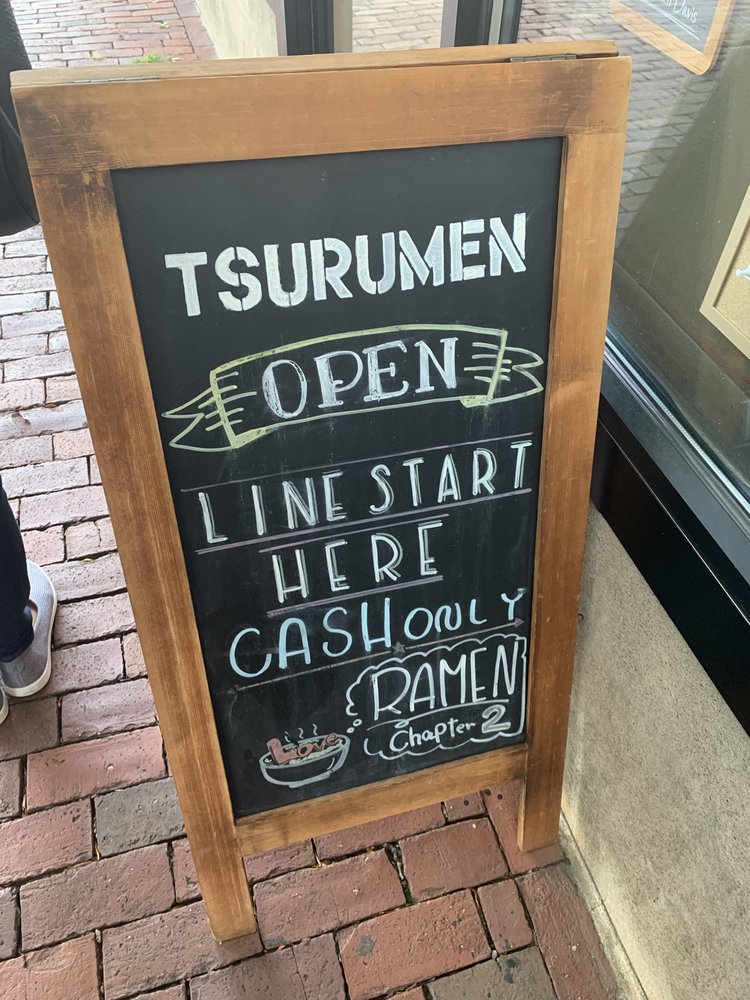 TSURUMEN
OPEN
LINE START
HERE
CASH ONLY
RAMEN
Chapter 2
Love